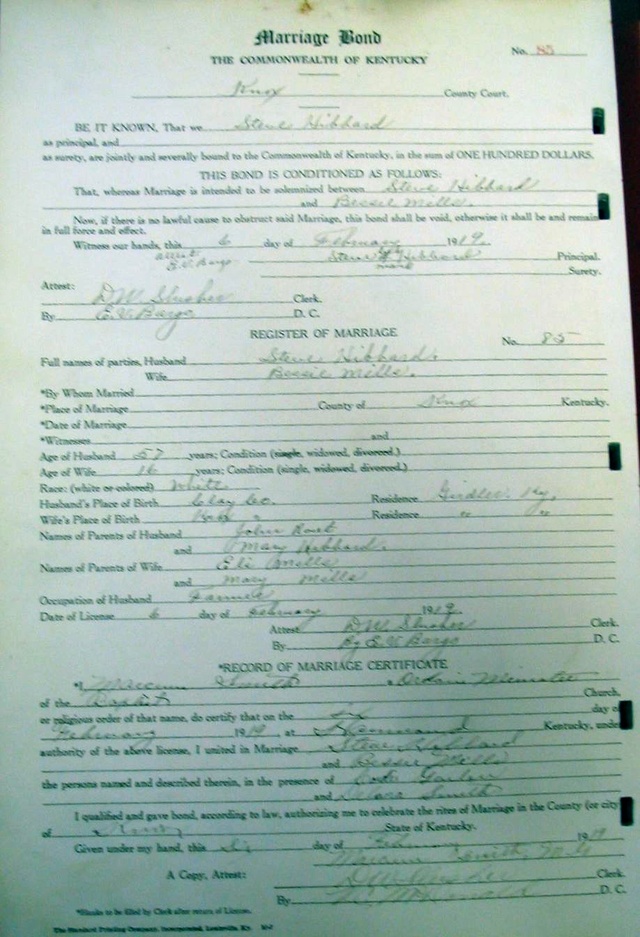 Marriage Bond
No. 85
THE COMMONWEALTH OF KENTUCKY
Knox County Court.
BE IT KNOWN, That we Steve Hibbard
as principal, and
as surety, are jointly and severally bound to the Commonwealth of Kentucky, in the sum of ONE HUNDRED DOLLARS.
THIS BOND IS CONDITIONED AS FOLLOWS:
That, whereas Marriage is intended to be solemnized between Steve Hibbard
and Bessie Mills.
Now, if there is no lawful cause to obstruct said Marriage, this bond shall be void, otherwise it shall be and remain
in full force and effect.
Witness our hands, this 6 day of February 1919.
attest Steve Hibbard Principal.
E.V. Bargo mark Surety.
Attest:
D W Slusher Clerk.
By E V Bargo D. C.
REGISTER OF MARRIAGE
No. 85
Full names of parties, Husband Steve Hibbard.
Wife Bessie Mills.
*By Whom Married
*Place of Marriage County of Knox Kentucky.
*Date of Marriage
*Witnesses and
Age of Husband 57 years; Condition (single, widowed, divorced.)
Age of Wife 16 years; Condition (single, widowed, divorced.)
Race: (white or colored) White
Husband's Place of Birth Clay Co. Residence Girdler Ky,
Wife's Place of Birth Knox " Residence " "
Names of Parents of Husband John
and Mary Hibbard.
Names of Parents of Wife Eli Mills
and Mary Mills
Occupation of Husband Farmer
Date of License 6 day of February 1919.
Attest D W Slusher Clerk.
By By E V Bargo D. C.
*RECORD OF MARRIAGE CERTIFICATE
*I Smith
of the Baptist Church,
or religious order of that name, do certify that on the day of
February 1919 at Kentucky, under
authority of the above license, I united in Marriage Steve Hibbard
and Bessie Mills
the persons named and described therein, in the presence of
and Smith
I qualified and gave bond, according to law, authorizing me to celebrate the rites of Marriage in the County (or city)
of Knox State of Kentucky.
Given under my hand, this day of Feb 1919
Smith
A Copy, Attest: D W Slusher Clerk.
By D. C.
*Blanks to be filled by Clerk after return of License.
The Standard Printing Company, Incorporated, Louisville, Ky.